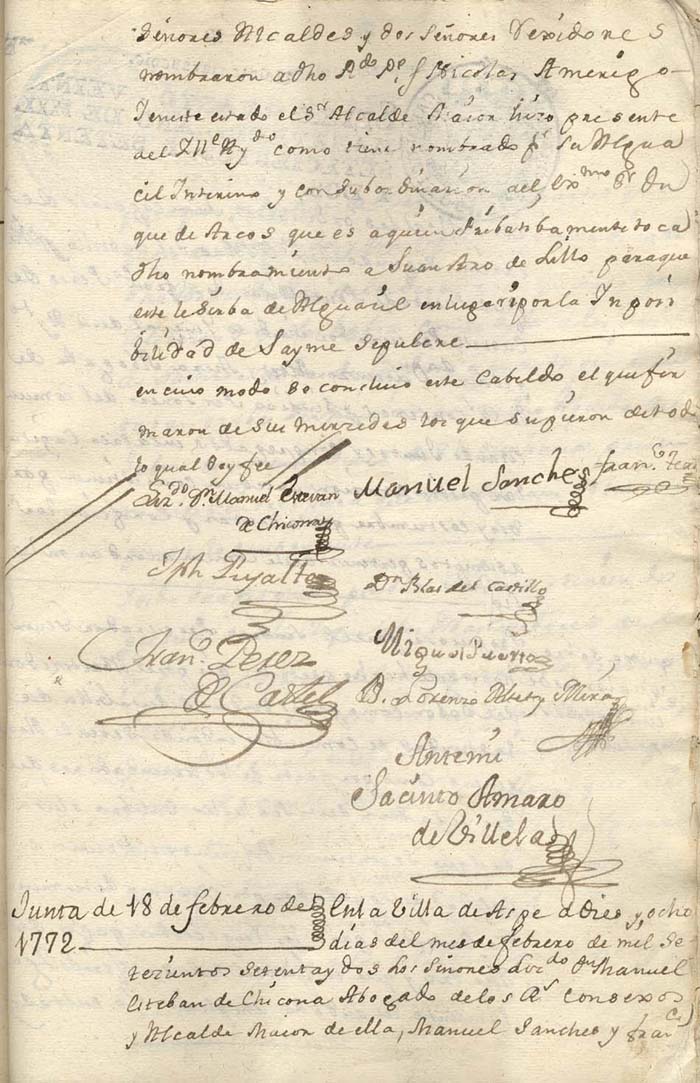 Señores Alcaldes y dos Señores Rexidores
nombraron a dho R.do P.e f Nicolas Amerigo
Teneste estado el S.r Alcalde Maior hizo presente
del Ill.e Ay.do como tiene nombrado p.r su Algua
cil Interino y con subordinacion del Ex.mo S.r Du
que de Arcos que es a quien Pribatibamente toca
dho nombramiento a Juan Aro de Lillo para que
este le sirba de Alguacil en lugar y por la Inposi
bilidad de Jayme Sepulcre
en cuio modo se concluio este Cabildo el que fir
maron de sus mercedes los que supieron de todo
lo qual doy fee
Liz.do D.n Manuel Estevan
de Chicona
Manuel Sanches
Fran.co
Jph Puyalte
D.n Blas del Castillo
Fran.co Perez
D Castel
Miguel Puerto
D. Lorenzo Alset y Mira
Antemi
Jacinto Amaro
de Villela
Junta de 18 de febrero de
1772
En la Villa de Aspe a Dies y ocho
dias del mes de febrero de mil Se
tecientos Setenta y dos los Señores Liz.do Dn Manuel
Esteban de Chicona Abogado de los R.s Consexos
y Alcalde Maior de ella, Manuel Sanches y Fran.co